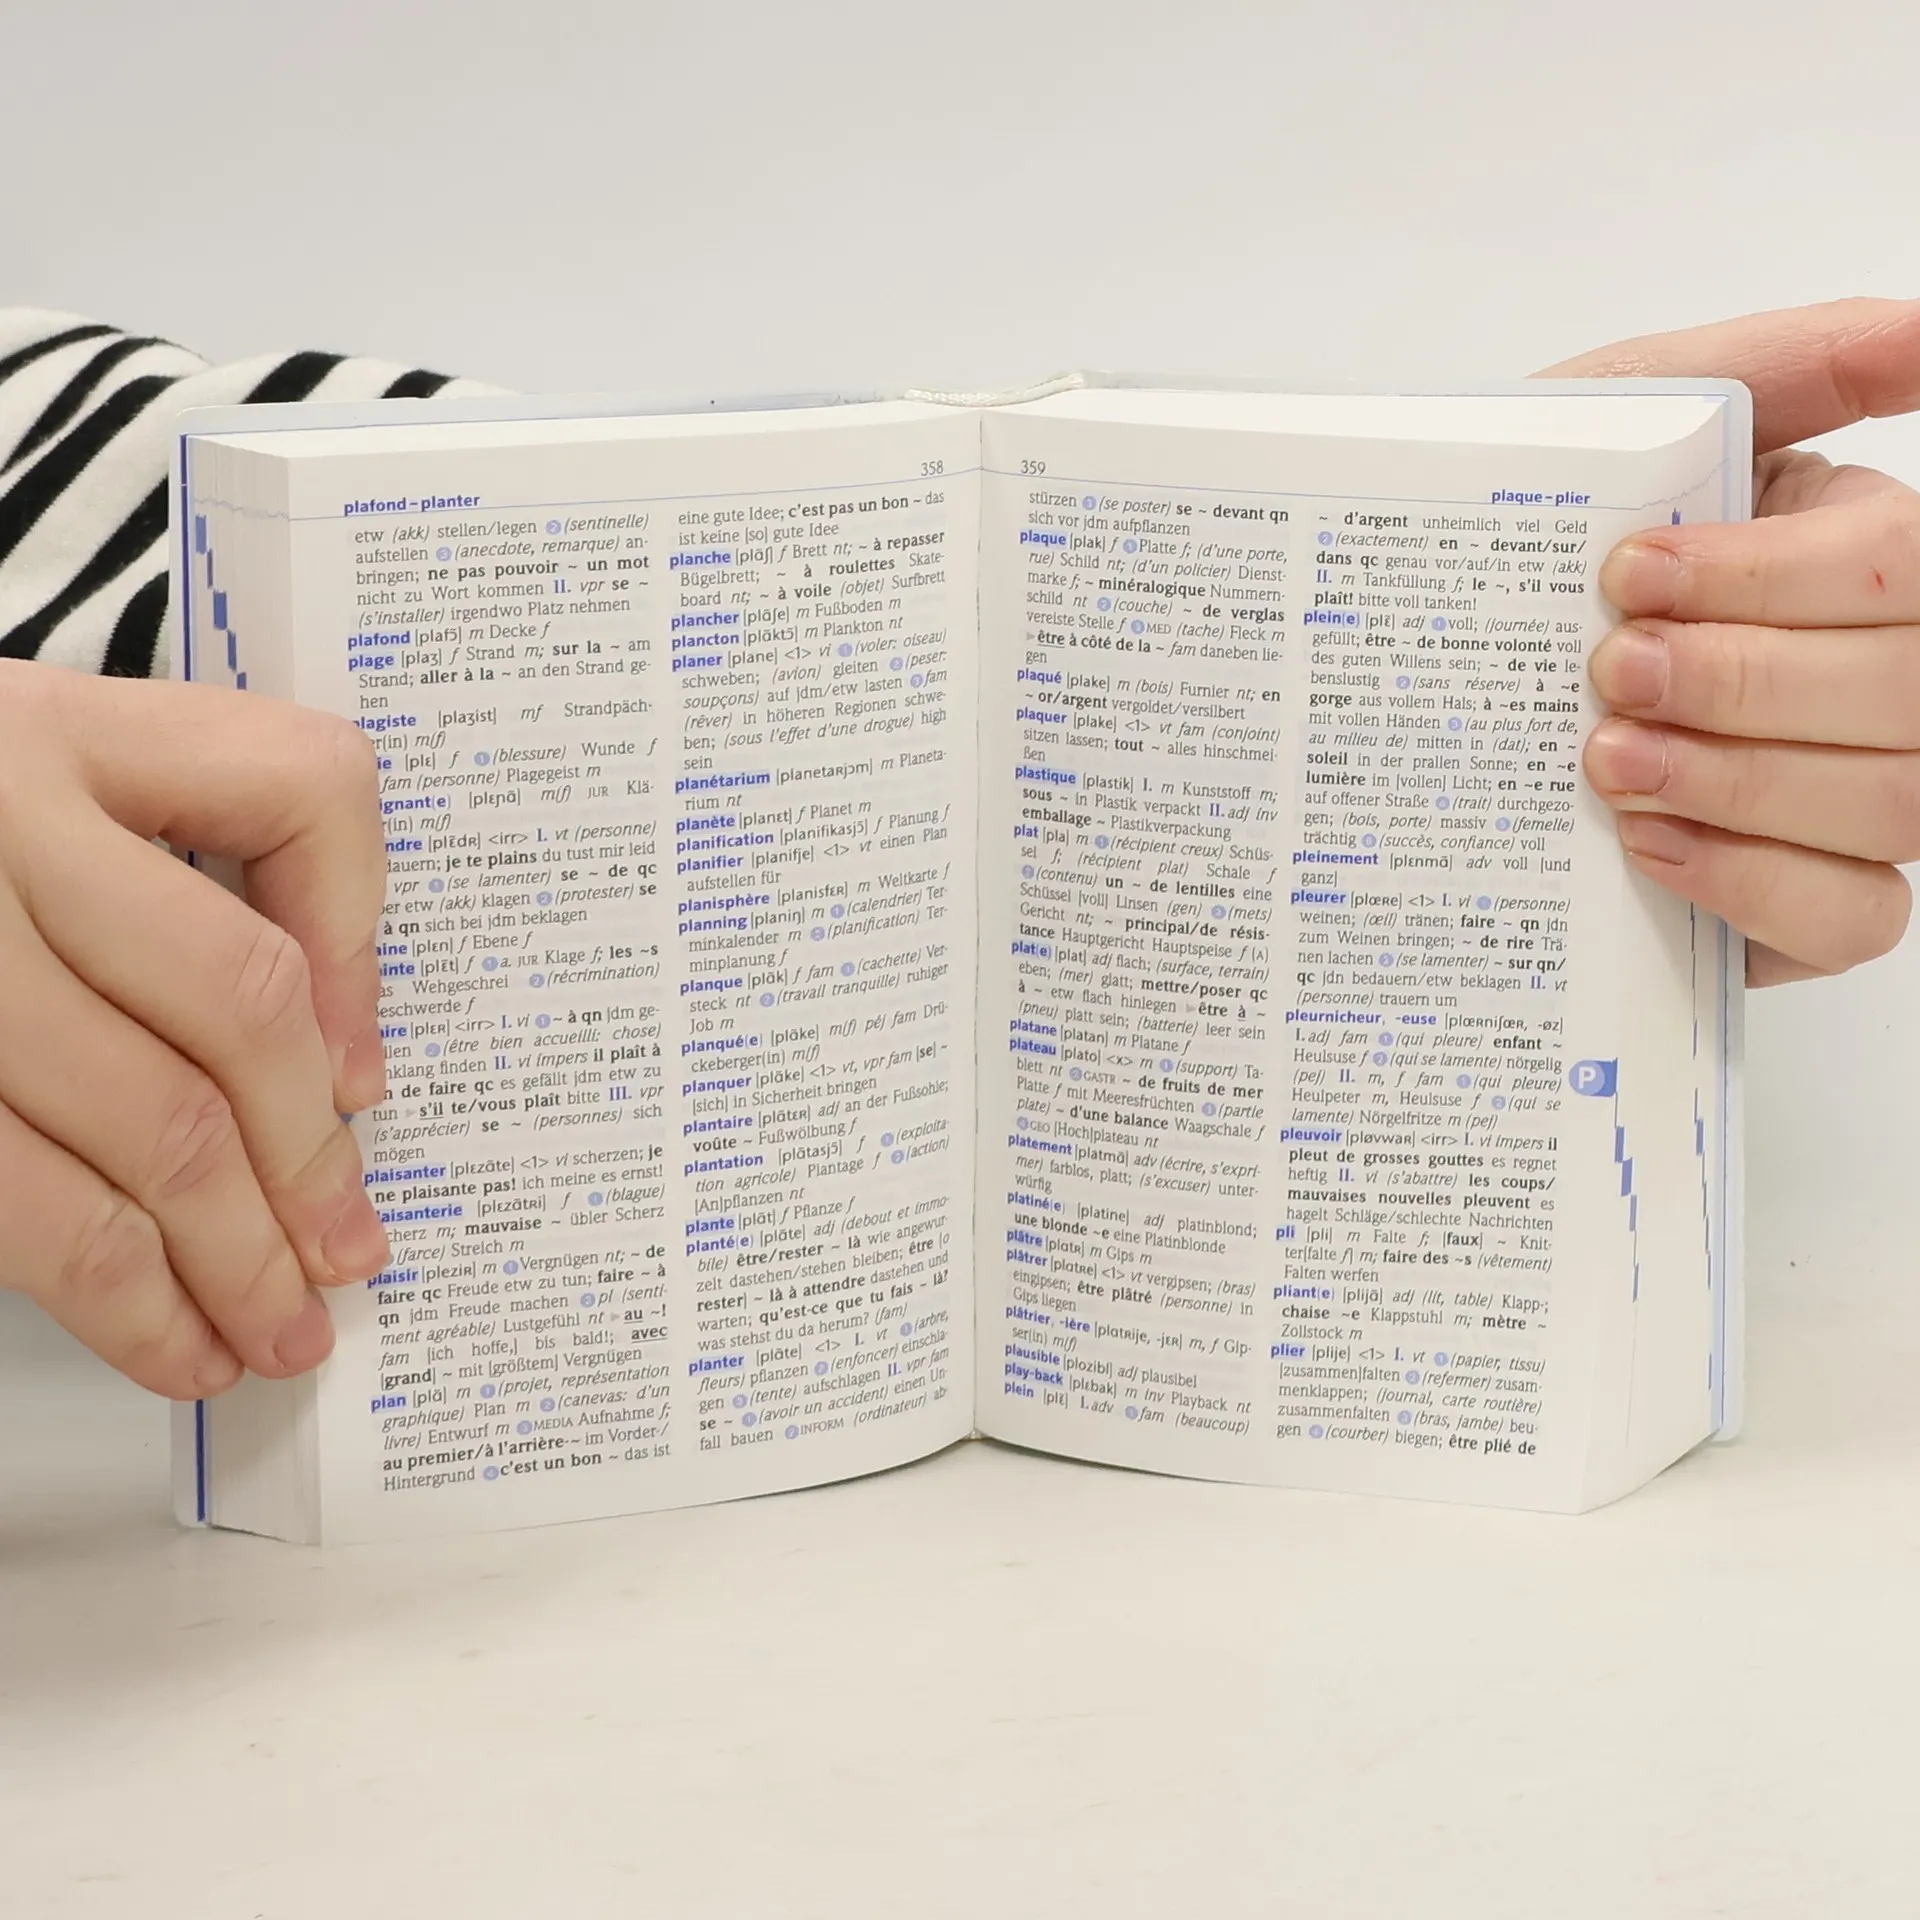 plafond – planter
358
etw (akk) stellen/legen ② (sentinelle)
aufstellen ③ (anecdote, remarque) an-
bringen; ne pas pouvoir ~ un mot
nicht zu Wort kommen II. vpr se ~
(s'installer) irgendwo Platz nehmen
plafond [plafɔ̃] m Decke f
plage [plaʒ] f Strand m; sur la ~ am
Strand; aller à la ~ an den Strand ge-
hen
plagiste [plaʒist] mf Strandpäch-
er(in) m(f)
ie [plɛ] f ① (blessure) Wunde f
fam (personne) Plagegeist m
ignant(e) [plɛɲɑ̃] m(f) JUR Klä-
r(in) m(f)
ndre [plɛ̃dʀ] <irr> I. vt (personne)
dauern; je te plains du tust mir leid
vpr ① (se lamenter) se ~ de qc
er etw (akk) klagen ② (protester) se
à qn sich bei jdm beklagen
aine [plɛn] f Ebene f
inte [plɛ̃t] f ① a. JUR Klage f; les ~s
as Wehgeschrei ② (récrimination)
eschwerde f
ire [plɛʀ] <irr> I. vi ① ~ à qn jdm ge-
llen ② (être bien accueilli: chose)
nklang finden II. vi impers il plaît à
n de faire qc es gefällt jdm etw zu
tun ▸ s'il te/vous plaît bitte III. vpr
(s'apprécier) se ~ (personnes) sich
mögen
plaisanter [plɛzɑ̃te] <1> vi scherzen; je
ne plaisante pas! ich meine es ernst!
aisanterie [plɛzɑ̃tʀi] f ① (blague)
cherz m; mauvaise ~ übler Scherz
(farce) Streich m
plaisir [pleziʀ] m ① Vergnügen nt; ~ de
faire qc Freude etw zu tun; faire ~ à
qn jdm Freude machen ② pl (senti-
ment agréable) Lustgefühl nt ▸ au ~!
fam [ich hoffe,] bis bald!; avec
[grand] ~ mit [größtem] Vergnügen
plan [plɑ̃] m ① (projet, représentation
graphique) Plan m ② (canevas: d'un
livre) Entwurf m ③ MEDIA Aufnahme f;
au premier/à l'arrière-~ im Vorder-/
Hintergrund ④ c'est un bon ~ das ist
eine gute Idee; c'est pas un bon ~ das
ist keine [so] gute Idee
planche [plɑ̃ʃ] f Brett nt; ~ à repasser
Bügelbrett; ~ à roulettes Skate-
board nt; ~ à voile (objet) Surfbrett
plancher [plɑ̃ʃe] m Fußboden m
plancton [plɑ̃ktɔ̃] m Plankton nt
planer [plane] <1> vi ① (voler: oiseau)
schweben; (avion) gleiten ② (peser:
soupçons) auf jdm/etw lasten ③ fam
(rêver) in höheren Regionen schwe-
ben; (sous l'effet d'une drogue) high
sein
planétarium [planetaʀjɔm] m Planeta-
rium nt
planète [planɛt] f Planet m
planification [planifikasjɔ̃] f Planung f
planifier [planifje] <1> vt einen Plan
aufstellen für
planisphère [planisfɛʀ] m Weltkarte f
planning [planiŋ] m ① (calendrier) Ter-
minkalender m ② (planification) Ter-
minplanung f
planque [plɑ̃k] f fam ① (cachette) Ver-
steck nt ② (travail tranquille) ruhiger
Job m
planqué(e) [plɑ̃ke] m(f) péj fam Drü-
ckeberger(in) m(f)
planquer [plɑ̃ke] <1> vt, vpr fam [se] ~
[sich] in Sicherheit bringen
plantaire [plɑ̃tɛʀ] adj an der Fußsohle;
voûte ~ Fußwölbung f
plantation [plɑ̃tasjɔ̃] f ① (exploita-
tion agricole) Plantage f ② (action)
[An]pflanzen nt
plante [plɑ̃t] f Pflanze f
planté(e) [plɑ̃te] adj (debout et immo-
bile) être/rester ~ là wie angewur-
zelt dastehen/stehen bleiben; être [o
rester] ~ là à attendre dastehen und
warten; qu'est-ce que tu fais ~ là?
was stehst du da herum? (fam)
planter [plɑ̃te] <1> I. vt ① (arbre,
fleurs) pflanzen ② (enfoncer) einschla-
gen ③ (tente) aufschlagen II. vpr fam
se ~ ① (avoir un accident) einen Un-
fall bauen ② INFORM (ordinateur) ab-
359
plaque – plier
stürzen ③ (se poster) se ~ devant qn
sich vor jdm aufpflanzen
plaque [plak] f ① Platte f; (d'une porte,
rue) Schild nt; (d'un policier) Dienst-
marke f; ~ minéralogique Nummern-
schild nt ② (couche) ~ de verglas
vereiste Stelle f ③ MED (tache) Fleck m
▸ être à côté de la ~ fam daneben lie-
gen
plaqué [plake] m (bois) Furnier nt; en
~ or/argent vergoldet/versilbert
plaquer [plake] <1> vt fam (conjoint)
sitzen lassen; tout ~ alles hinschmei-
ßen
plastique [plastik] I. m Kunststoff m;
sous ~ in Plastik verpackt II. adj inv
emballage ~ Plastikverpackung
plat [pla] m ① (récipient creux) Schüs-
sel f; (récipient plat) Schale f
② (contenu) un ~ de lentilles eine
Schüssel [voll] Linsen (gen) ③ (mets)
Gericht nt; ~ principal/de résis-
tance Hauptgericht Hauptspeise f (A)
plat(e) [plat] adj flach; (surface, terrain)
eben; (mer) glatt; mettre/poser qc
à ~ etw flach hinlegen ▸ être à ~
(pneu) platt sein; (batterie) leer sein
platane [platan] m Platane f
plateau [plato] <x> m ① (support) Ta-
blett nt ② GASTR ~ de fruits de mer
Platte f mit Meeresfrüchten ③ (partie
plate) ~ d'une balance Waagschale f
④ GEO [Hoch]plateau nt
platement [platmɑ̃] adv (écrire, s'expri-
mer) farblos, platt; (s'excuser) unter-
würfig
platiné(e) [platine] adj platinblond;
une blonde ~e eine Platinblonde
plâtre [plɑtʀ] m Gips m
plâtrer [plɑtʀe] <1> vt vergipsen; (bras)
eingipsen; être plâtré (personne) in
Gips liegen
plâtrier, -ière [plɑtʀije, -jɛʀ] m, f Gip-
ser(in) m(f)
plausible [plozibl] adj plausibel
play-back [plɛbak] m inv Playback nt
plein [plɛ̃] I. adv ① fam (beaucoup)
~ d'argent unheimlich viel Geld
② (exactement) en ~ devant/sur/
dans qc genau vor/auf/in etw (akk)
II. m Tankfüllung f; le ~, s'il vous
plaît! bitte voll tanken!
plein(e) [plɛ̃] adj ① voll; (journée) aus-
gefüllt; être ~ de bonne volonté voll
des guten Willens sein; ~ de vie le-
benslustig ② (sans réserve) à ~e
gorge aus vollem Hals; à ~es mains
mit vollen Händen ③ (au plus fort de,
au milieu de) mitten in (dat); en ~
soleil in der prallen Sonne; en ~e
lumière im [vollen] Licht; en ~e rue
auf offener Straße ④ (trait) durchgezo-
gen; (bois, porte) massiv ⑤ (femelle)
trächtig ⑥ (succès, confiance) voll
pleinement [plɛnmɑ̃] adv voll [und
ganz]
pleurer [plœʀe] <1> I. vi ① (personne)
weinen; (œil) tränen; faire ~ qn jdn
zum Weinen bringen; ~ de rire Trä-
nen lachen ② (se lamenter) ~ sur qn/
qc jdn bedauern/etw beklagen II. vt
(personne) trauern um
pleurnicheur, -euse [plœʀniʃœʀ, -øz]
I. adj fam ① (qui pleure) enfant ~
Heulsuse f ② (qui se lamente) nörgelig
(pej) II. m, f fam ① (qui pleure)
Heulpeter m, Heulsuse f ② (qui se
lamente) Nörgelfritze m (pej)
pleuvoir [pløvwaʀ] <irr> I. vi impers il
pleut de grosses gouttes es regnet
heftig II. vi (s'abattre) les coups/
mauvaises nouvelles pleuvent es
hagelt Schläge/schlechte Nachrichten
pli [pli] m Falte f; [faux] ~ Knit-
ter[falte f] m; faire des ~s (vêtement)
Falten werfen
pliant(e) [plijɑ̃] adj (lit, table) Klapp-;
chaise ~e Klappstuhl m; mètre ~
Zollstock m
plier [plije] <1> I. vt ① (papier, tissu)
[zusammen]falten ② (refermer) zusam-
menklappen; (journal, carte routière)
zusammenfalten ③ (bras, jambe) beu-
gen ④ (courber) biegen; être plié de
P